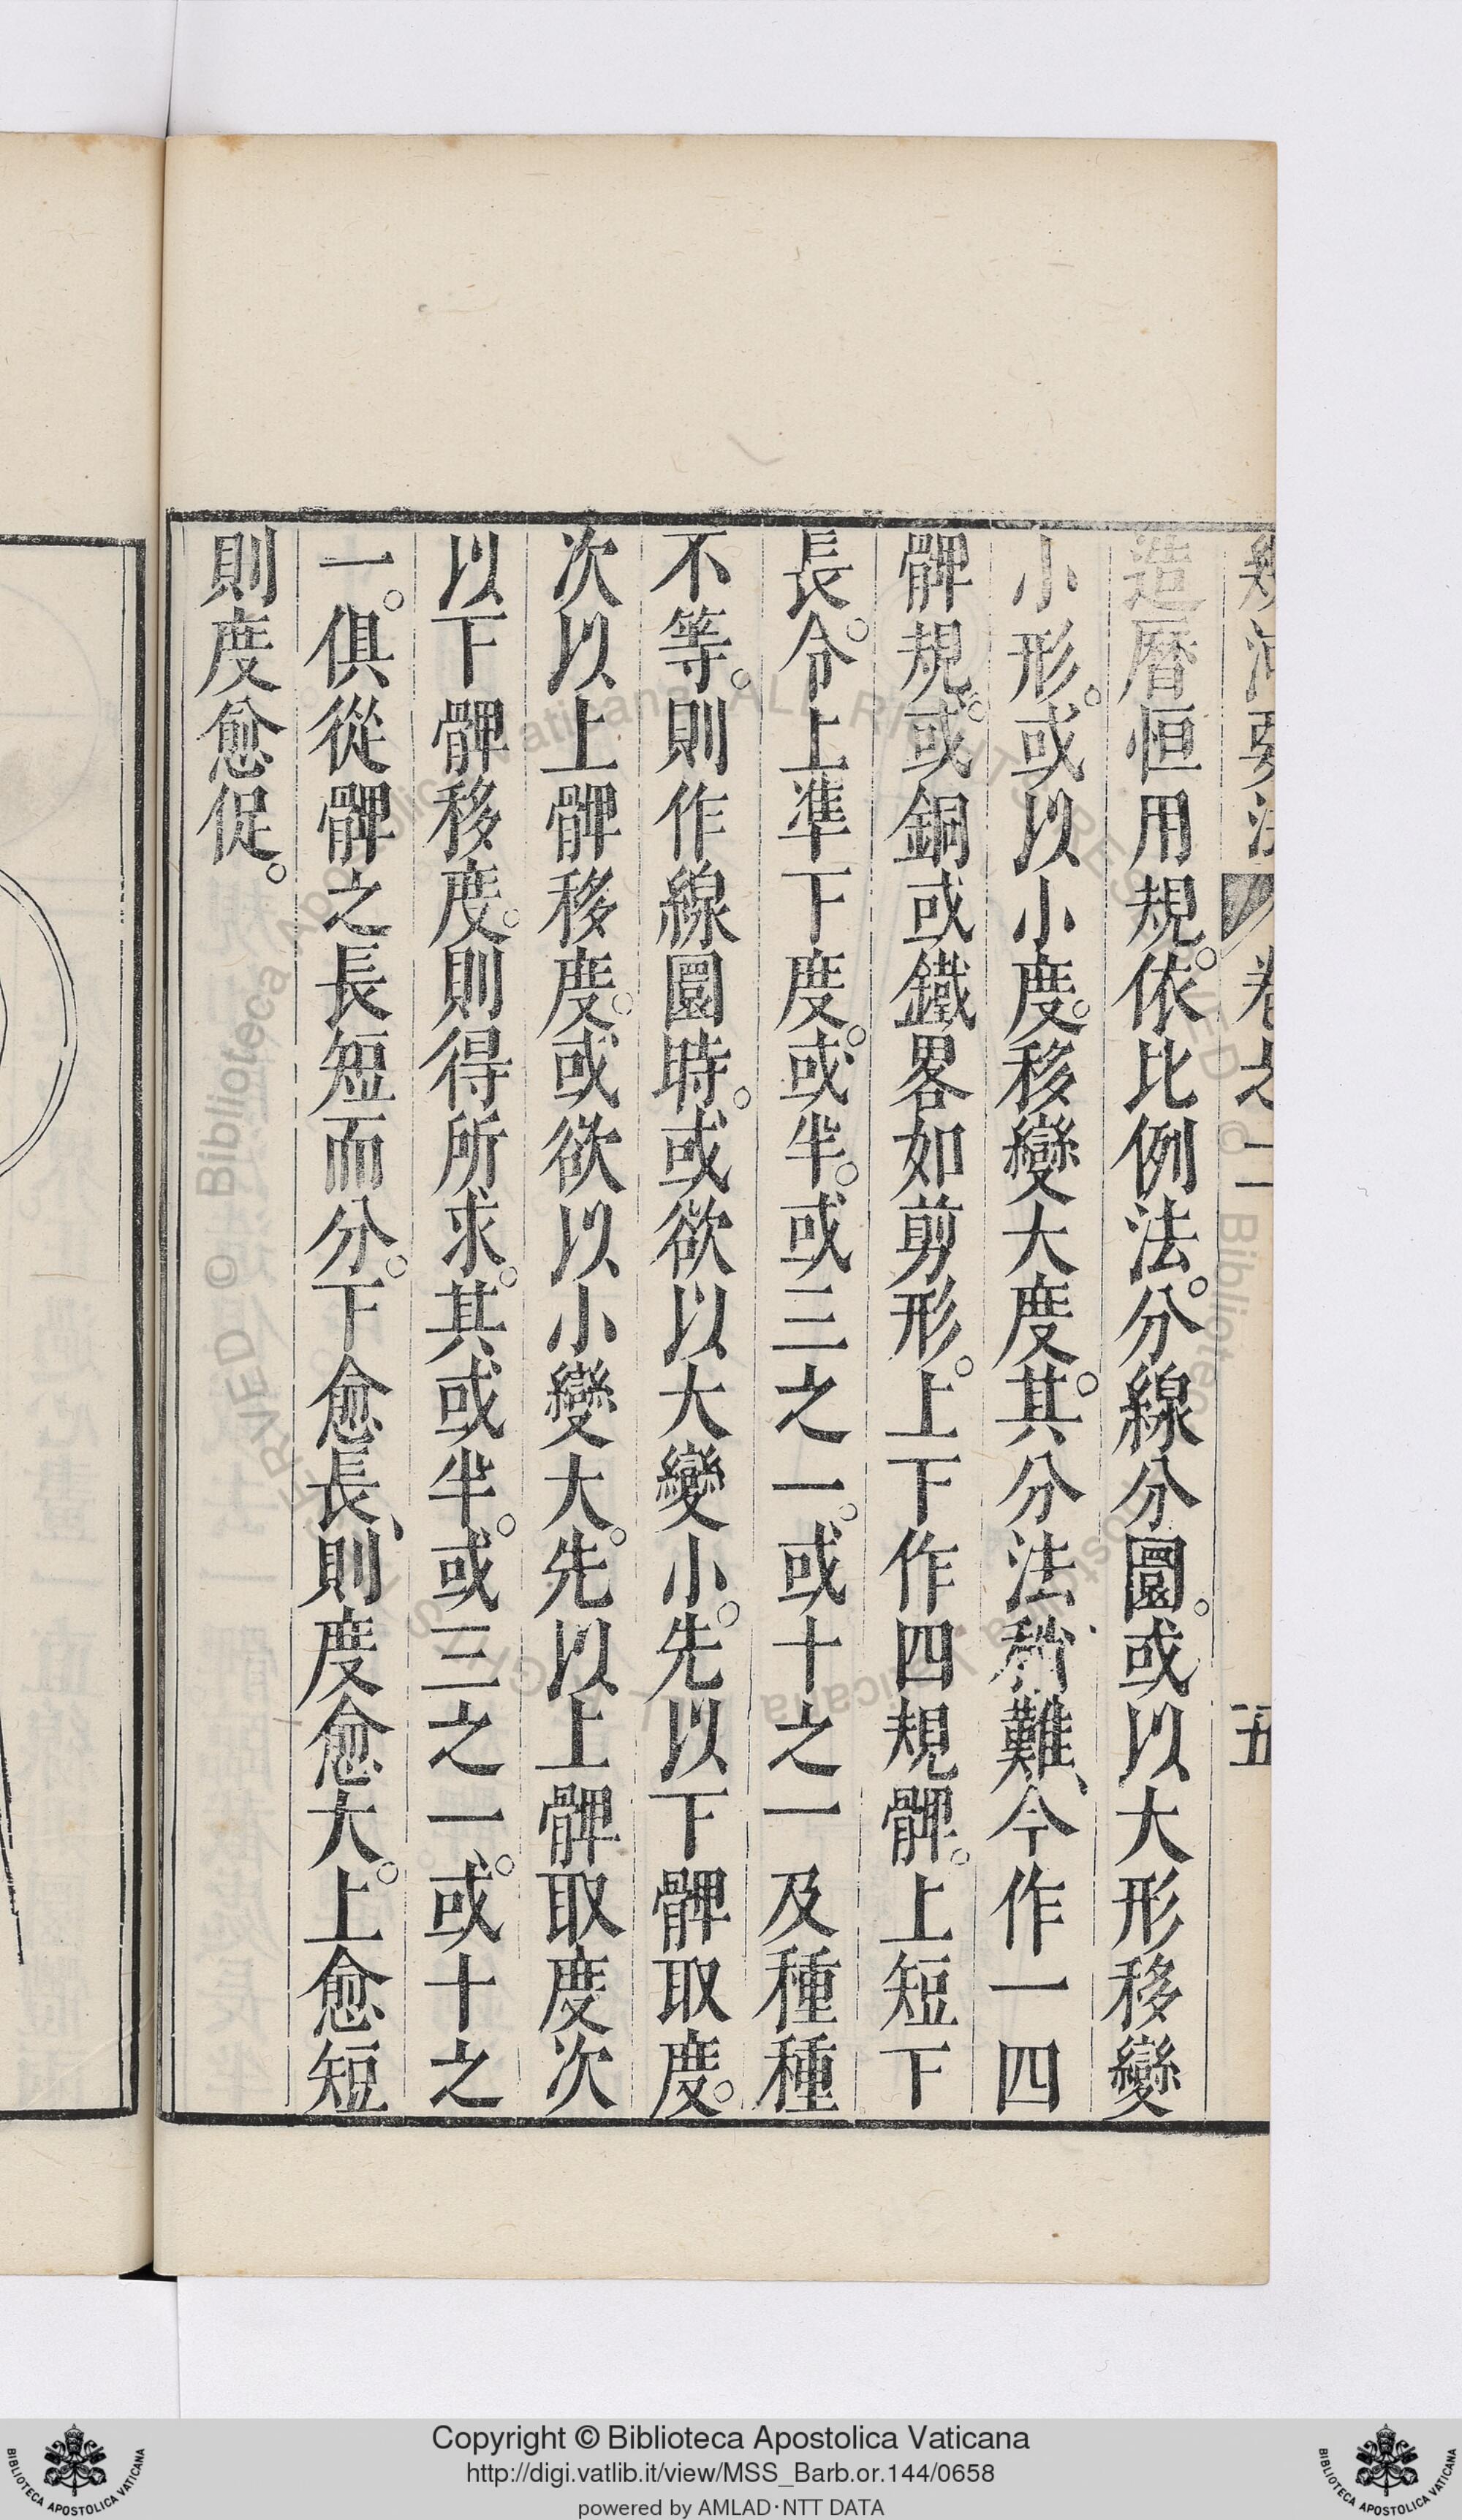 幾何要法 卷之二 五
造曆恒用規。依比例法。分線分圜。或以大形移變
小形。或以小度。移變大度。其分法稍難、今作一四
髀規。或銅或鐵畧如剪形。上下作四規髀。上短下
長。令上準下度。或半。或三之一。或十之一及種種
不等。則作線圜時。或欲以大變小。先以下髀取度。
次以上髀移度。或欲以小變大。先以上髀取度次
以下髀移度。則得所求。其或半。或三之一。或十之
一。俱從髀之長短而分。下愈長、則度愈大。上愈短
則度愈促。
Copyright © Biblioteca Apostolica Vaticana
http://digi.vatlib.it/view/MSS_Barb.or.144/0658
powered by AMLAD·NTT DATA
BIBLIOTECA APOSTOLICA VATICANA
BIBLIOTECA APOSTOLICA VATICANA